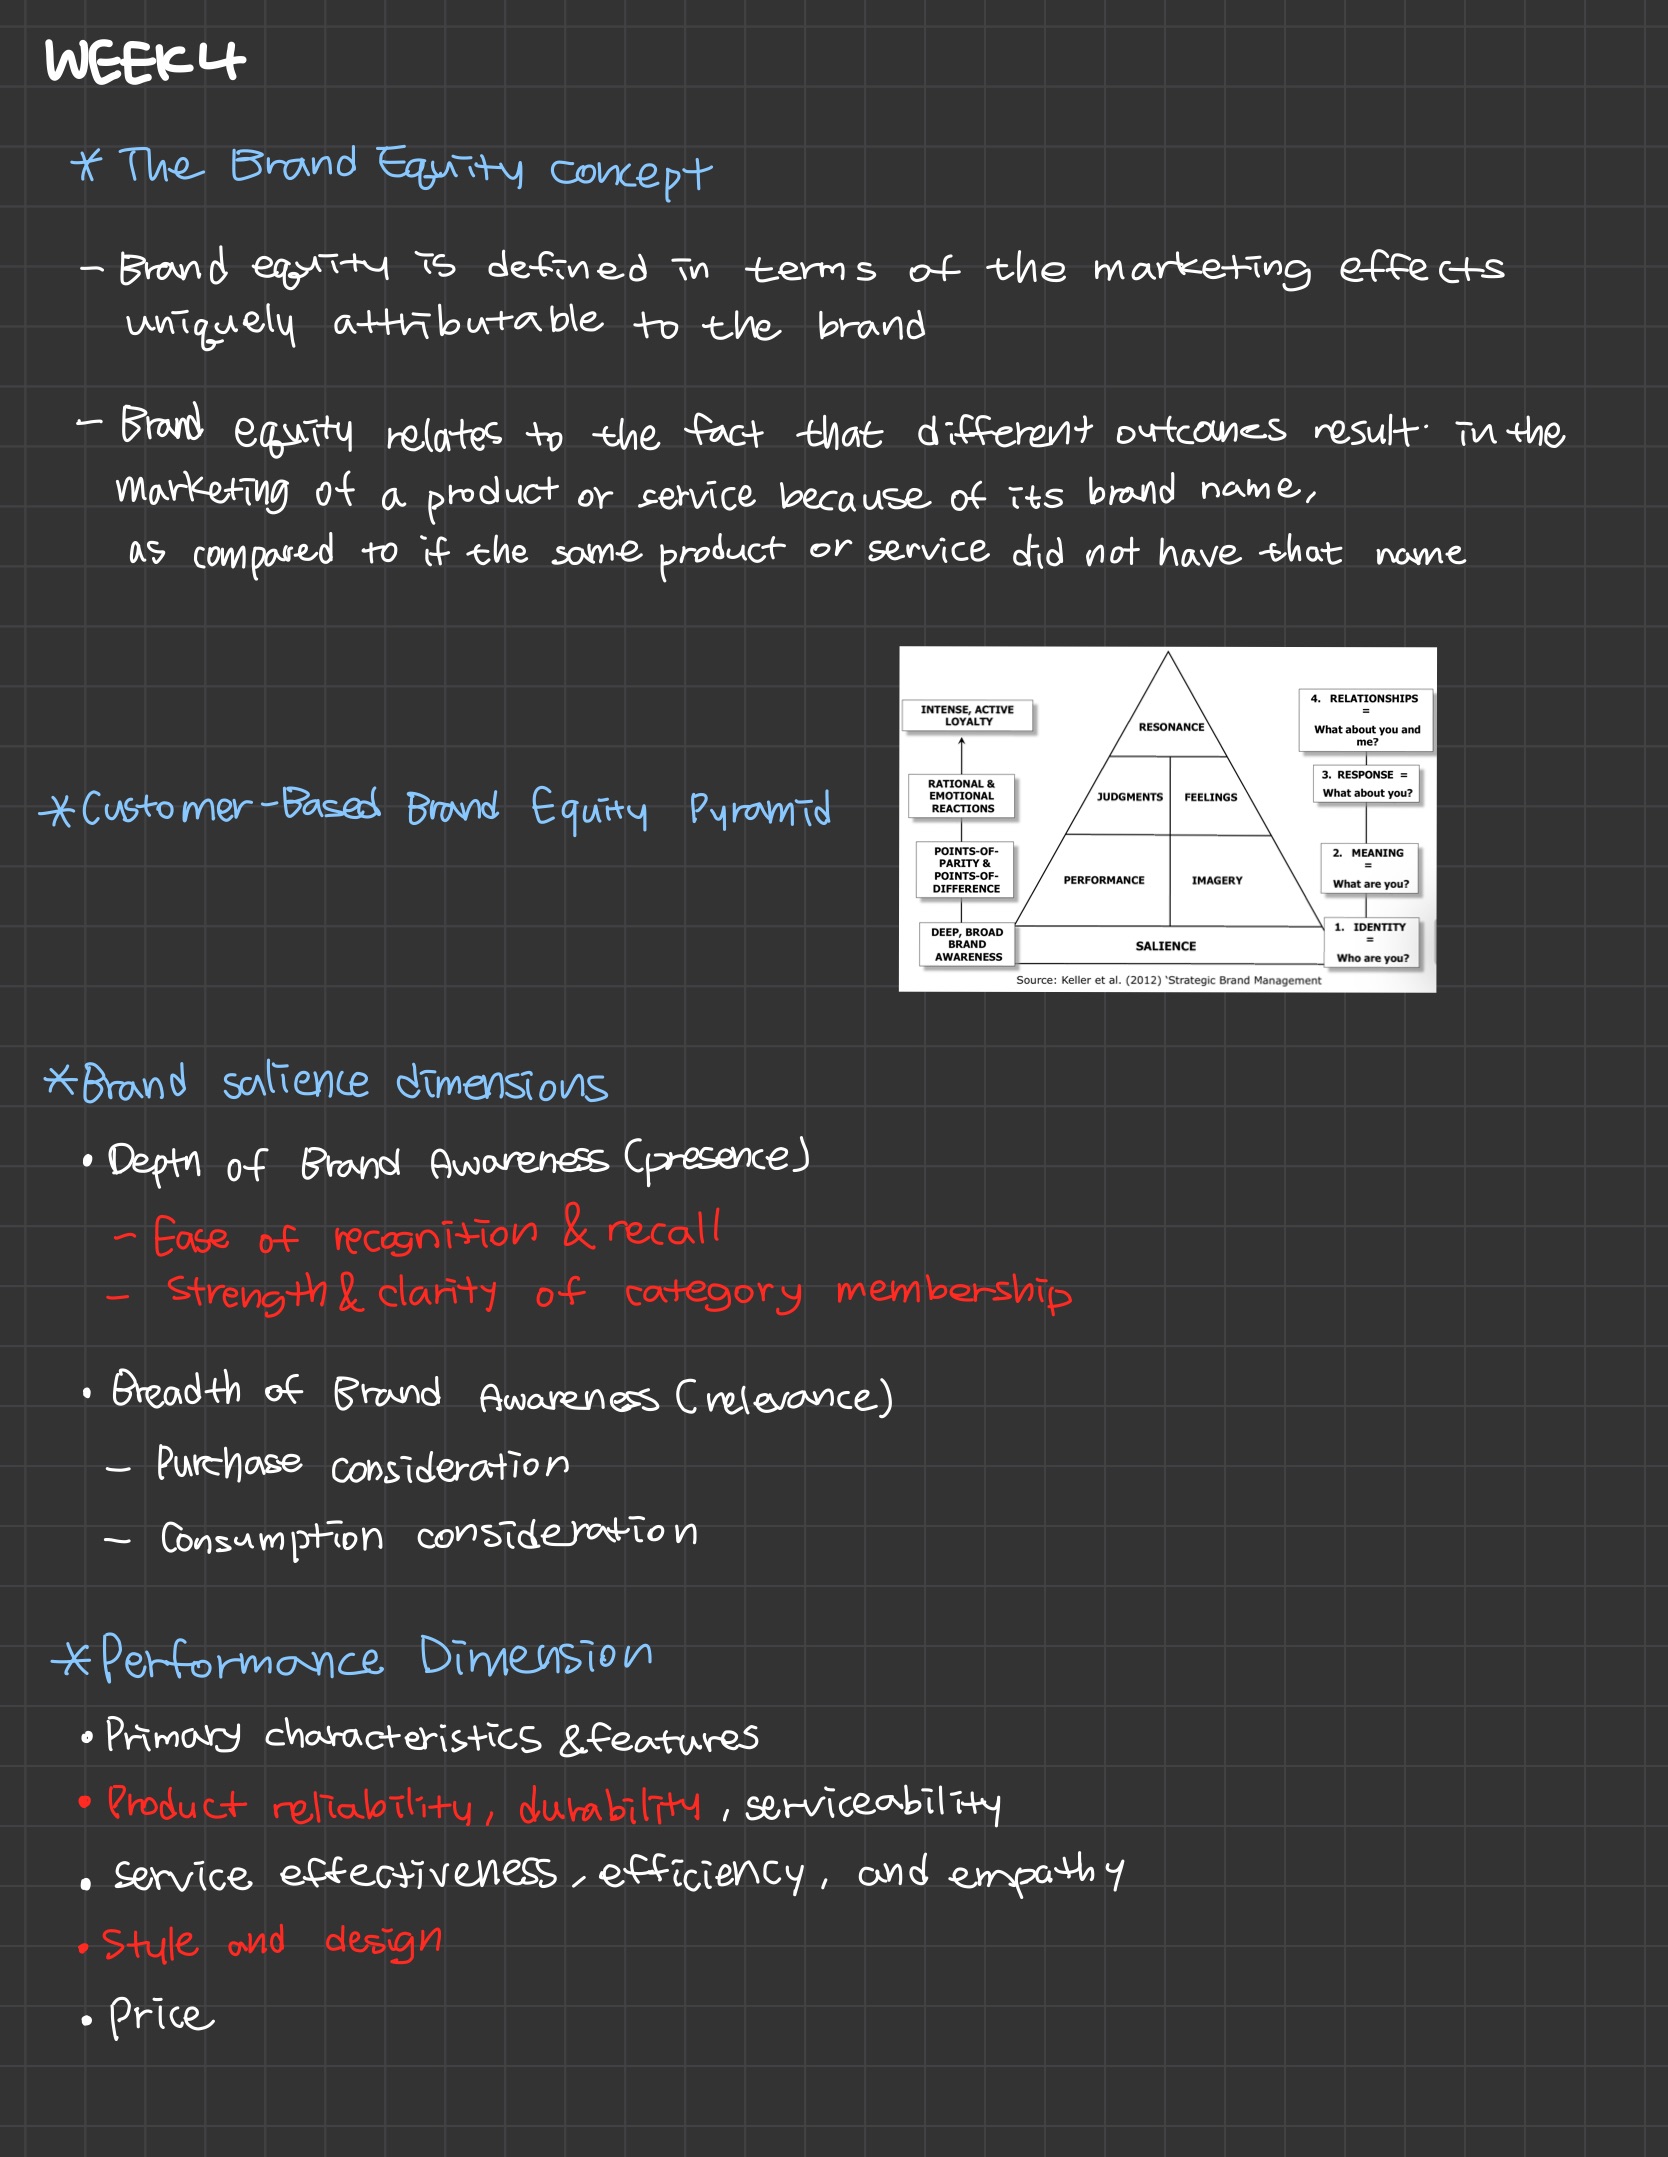 WEEK4
* The Brand Equity concept
- Brand equity is defined in terms of the marketing effects
uniquely attributable to the brand
- Brand equity relates to the fact that different outcomes result in the
marketing of a product or service because of its brand name,
as compared to if the same product or service did not have that name
INTENSE, ACTIVE
LOYALTY
RATIONAL &
EMOTIONAL
REACTIONS
POINTS-OF-
PARITY &
POINTS-OF-
DIFFERENCE
DEEP, BROAD
BRAND
AWARENESS
RESONANCE
JUDGMENTS FEELINGS
PERFORMANCE IMAGERY
SALIENCE
4. RELATIONSHIPS
=
What about you and
me?
3. RESPONSE =
What about you?
2. MEANING
=
What are you?
1. IDENTITY
=
Who are you?
Source: Keller et al. (2012) 'Strategic Brand Management
* Customer-Based Brand Equity Pyramid
* Brand salience dimensions
• Depth of Brand Awareness (presence)
- Ease of recognition & recall
- Strength & clarity of category membership
• Breadth of Brand Awareness (relevance)
- Purchase consideration
- Consumption consideration
* Performance Dimension
• Primary characteristics & features
• Product reliability, durability, serviceability
• service effectiveness, efficiency, and empathy
• Style and design
• Price